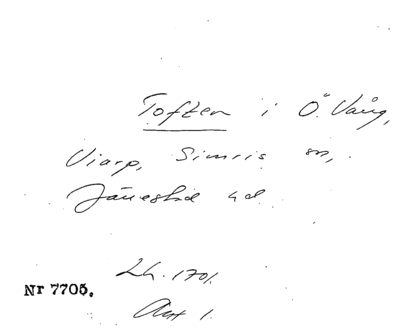 Toften i Ö. Vång,
Viarp, Simris sn,
Järrestad hd
Lh. 1701.
Nr 7705.
Akt 1.